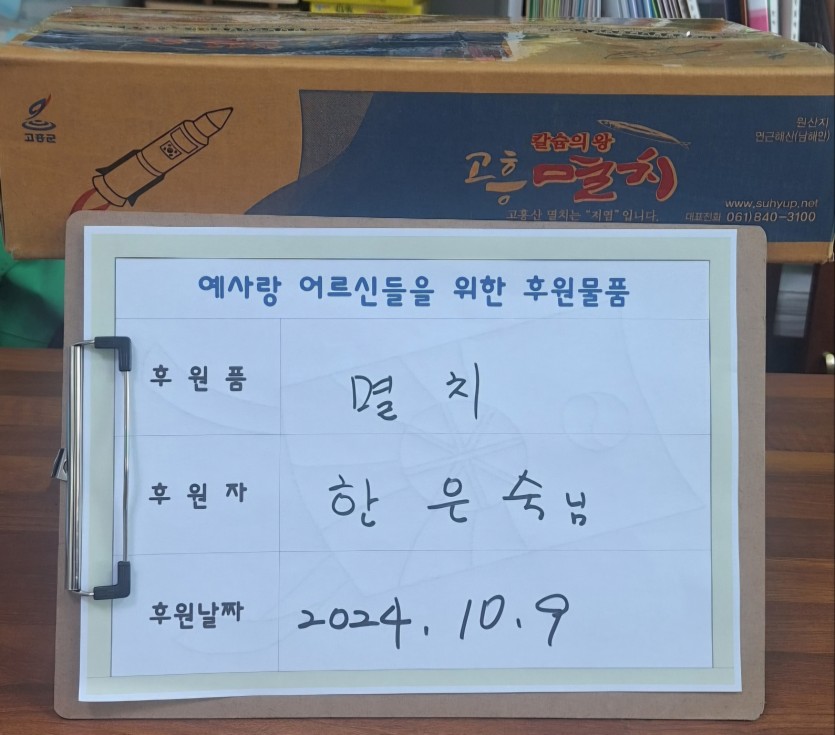 고흥군
원산지
연근해산(남해안)
칼슘의왕
고흥 멸치
고흥산 멸치는 "지염" 입니다.
www.sunyup.net
대표전화 061)840-3100
예사랑 어르신들을 위한 후원물품
후 원 품 멸 치
후 원 자 한 은 숙 님
후원날짜 2024. 10. 9